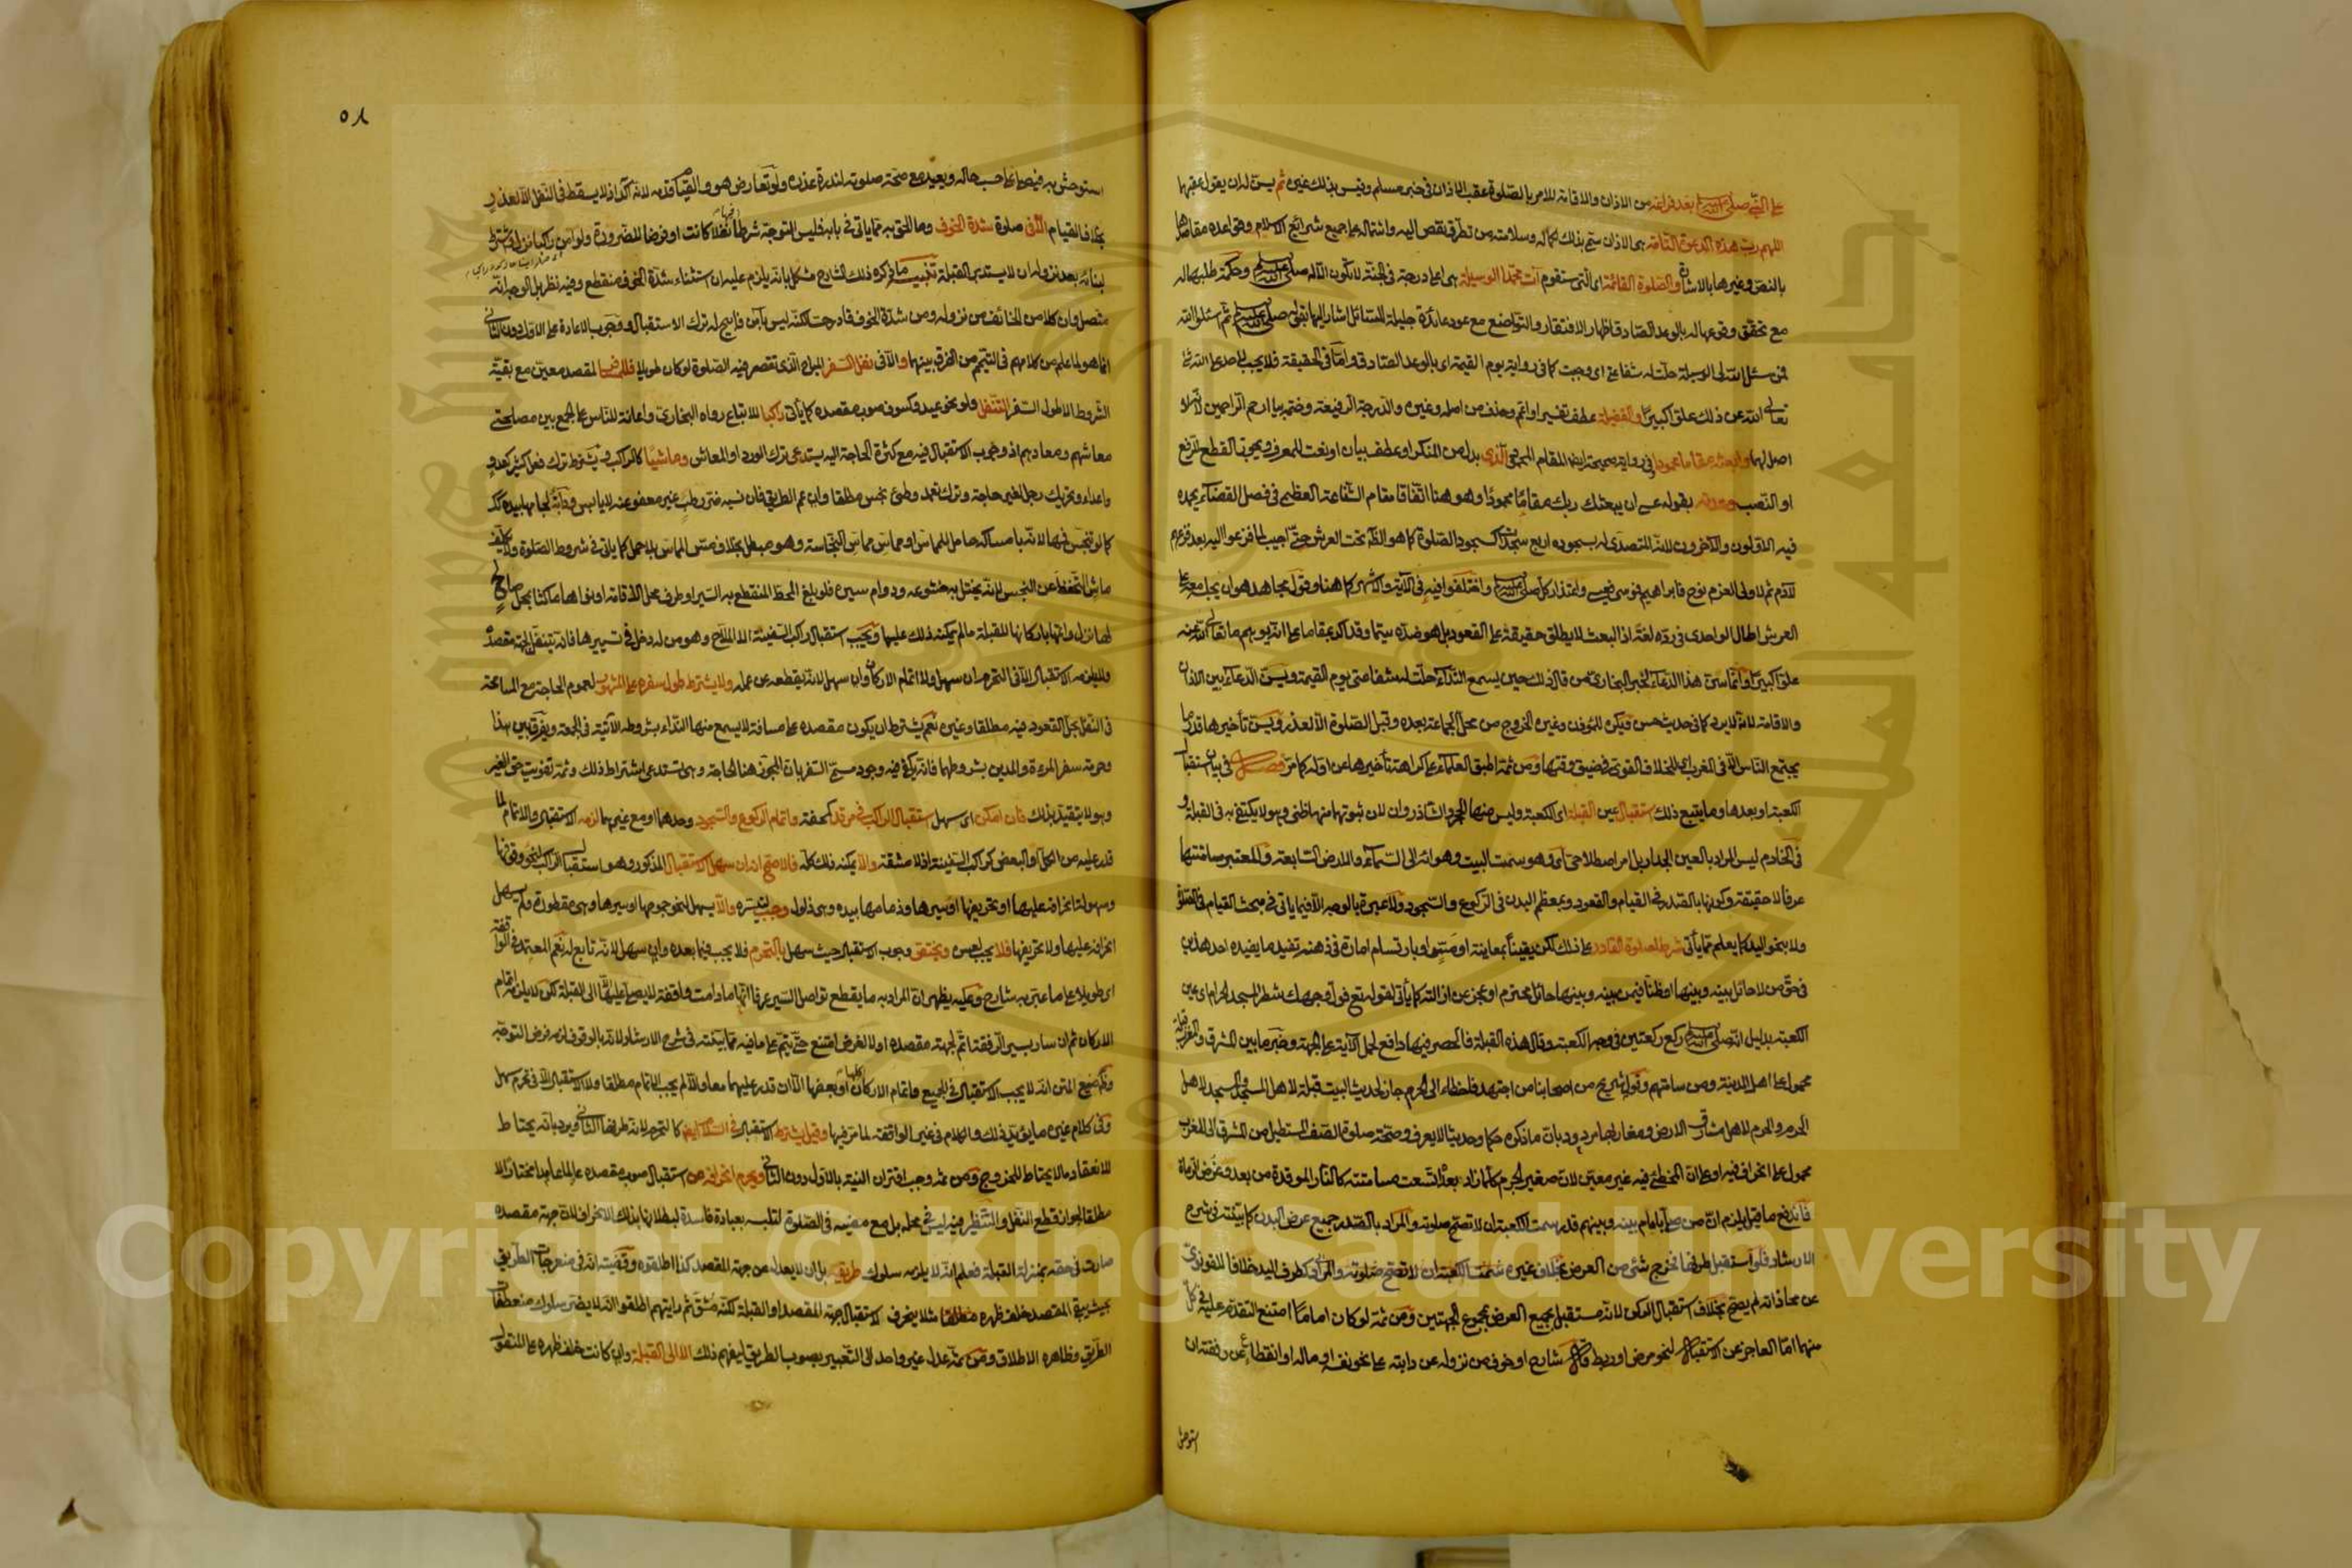 على النبي صلى الله عليه وسلم بعد فراغه من الاذان والاقامة للامر بالصلوة عقب الاذان في خبر مسلم وقيس بذلك غيره ثم يسن له ان يقول عقبها
اللهم رب هذه الدعوة التامة هي الاذان سمي بذلك لكماله وسلامته من تطرق نقص اليه واشتماله على جميع شرائع الاسلام وقواعده مقاصدها
بالنص وغيرها بالاشارة والصلوة القائمة اى التى ستقوم آت محمدا الوسيلة هى اعلى درجة فى الجنة لا تكون الا له صلى الله عليه وسلم وحكمة طلبها له
مع تحقق وقوعها له بالوعد الصادق اظهار الافتقار والتواضع مع عود عائدة جليلة للسائل اشار اليها بقوله صلى الله عليه وسلم ثم اسئلوا الله
فمن سئل الله لى الوسيلة حلت له شفاعتى اى وجبت كما فى رواية يوم القيمة اى بالوعد الصادق واما فى الحقيقة فلا يجب لاحد على الله شئ
تعالى الله عن ذلك علوا كبيرا والفضيلة عطف تفسير او اعم وحذف من اصله وغيره والدرجة الرفيعة وختمه بيا ارحم الراحمين لانه لا
اصل لهما وابعثه مقاما محمودا وفى رواية صحيحة ايضا المقام المحمود الذى بدل من المنكر او عطف بيان او نعت للمعرف ويجوز القطع للرفع
او النصب وعدته بقوله عسى ان يبعثك ربك مقاما محمودا وهو هنا اتفاقا مقام الشفاعة العظمى فى فصل القضاء يحمده
فيه الاولون والآخرون لانه المتصدى له بسجوده اربع سجدات كسجود الصلوة كما هو الظاهر تحت العرش حتى اجيب لما فزعوا اليه بعد فزعهم
لآدم ثم لاولى العزم نوح فابراهيم فموسى فعيسى واعتذار كل صلى الله عليه وسلم واختلفوا فيه فى الآية والاشهر كما هنا وقول مجاهد هو ان يجلسه معه على
العرش اطال الواحدى فى رده لغة اذ البعث لا يطلق حقيقة على القعود بل هو ضده سيما وقد اكد بمقاما على انه يوهم ما تعالى الله عنه
علوا كبيرا وانما سن هذا الدعاء لخبر البخارى من قال ذلك حين يسمع النداء حلت له شفاعتى يوم القيمة ويسن الدعاء بين الاذان
والاقامة لانه لا يرد كما فى حديث حسن ويكره للمؤذن وغيره الخروج من محل الجماعة بعده وقبل الصلوة الا لعذر ويسن تأخيرها قدر ما
يجتمع الناس الا فى المغرب اى للخلاف القوى فى ضيق وقتها ومن ثمة اطبق العلماء على كراهة تأخيرها عن اوله كما مر فصل فى بيان استقبال
الكعبة او بعدها وما يتبع ذلك استقبال عين القبلة اى الكعبة وليس منها الحجر والشاذروان لان ثبوتهما منها ظنى وهو لا يكتفى به فى القبلة و
فى الخادم ليس المراد بالعين الجدار بل امر اصطلاحى اى وهو سمت البيت وهوائه الى السماء والارض السابعة والمعتبر مسامتتها
عرفا لا حقيقة وكونها بالصدر فى القيام والقعود وبمعظم البدن فى الركوع والسجود ولا عبرة بالوجه الا فيما ياتى فى مبحث القيام فى الصلوة
ولا بنحو اليد كما يعلم مما يأتى شرط لصلوة القادر على ذلك لكن يقينا بمعاينة او مس او بارتسام امارة فى ذهنه تفيد ما يفيده احد هذين
فى حق من لا حائل بينه وبينها او ظنا فيمن بينه وبينها حائل محترم او عجز عن ازالته كما يأتى لقوله تع فول وجهك شطر المسجد الحرام اى عين
الكعبة بدليل انه صلى الله عليه وسلم ركع ركعتين فى وجه الكعبة وقال هذه القبلة فالحصر فيها دافع لحمل الآية على الجهة وخبر ما بين المشرق والمغرب قبلة
محمول على اهل المدينة ومن سامتهم وقول شريح من اصحابنا من اجتهد فاخطاء الى الحرم جاز لحديث البيت قبلة لاهل المسجد والمسجد لاهل
الحرم والحرم لاهل مشارق الارض ومغاربها مردود بان ما ذكره حكما وحديثا لا يعرف وصحة صلوة الصف المستطيل من المشرق الى المغرب
محمول على انحراف فيه او على ان المخطئ فيه غير معين لان صغير الجرم كلما زاد بعدا اتسعت مسامتته كالنار الموقدة من بعد وغرض الرماة
فاندفع ما قيل يلزم ان من صلى بامام بينه وبينهم قدر سمت الكعبة ان لا تصح صلوته والمراد بالصدر جميع عرض البدن كما بينته فى شرح
الارشاد فلو استقبل طرفها فخرج شئ من العرض بخلاف غيره
عن محاذاته لم يصح بخلاف استقبال الركن لانه مستقبل بجميع العرض لمجموع الجهتين ومن ثمة لو كان اماما امتنع التقدم عليه فى كل
منهما اما العاجز عن الاستقبال لنحو مرض او ربط وقال شارح او خوف من نزوله عن دابته على نحو نفسه او ماله او انقطاع عن رفقته ان
استوحش
٥٨
استوحش به فيصلى على حسب حاله ويعيد مع صحة صلوته لندرة عذره ولو تعارض هو والقيام قدمه لانه آكد اذ لا يسقط فى النفل الا لعذر
بخلاف القيام الا فى صلوة شدة الخوف وما الحق به مما ياتى فى بابه فليس التوجه شرطا فيها نفلا كانت او فرضا للضرورة ولو امن راكبا نزل ويشترط
لبنائه بعد نزوله ان لا يستدبر القبلة تنبيه ما ذكره ذلك الشارح مشكل بانه يلزم عليه ان استثناء شدة الخوف منقطع وفيه نظر بل الوجه انه
متصل وان كلا من الخائف من نزوله ومن شدة الخوف قادر حسا لكنه ليس بآمن فابيح له ترك الاستقبال ووجوب الاعادة على الاول دون الثانى
انما هو لما علم من كلامهم فى التيمم من الفرق بينهما والا فى نفل السفر المباح الذى تقصر فيه الصلوة لو كان طويلا فللمسافر لمقصد معين مع بقية
الشروط الا طول السفر التنفل ولو نحو عيد وكسوف صوب مقصده كما يأتى راكبا للاتباع رواه البخارى واعانة للناس على الجمع بين مصلحتى
معاشهم ومعادهم اذ وجوب الاستقبال فيه مع كثرة الحاجة اليه يستدعى ترك الورد او المعاش وماشيا كالراكب ويشترط ترك فعل كثير كعدو
واعداء وتحريك رجل لغير حاجة وترك تعمد وطئ نجس مطلقا وان عم الطريق فان نسيه ضر رطب غير معفو عنه لا يابس ودابة لجامها بيده كذا
كما لو تنجس فمها لانه بامساكه حامل لمماس او مماس مماس النجاسة وهو مبطل بخلاف مس المماس بلا حمل كما ياتى فى شروط الصلوة ولا يكلف
ماش التحفظ عن النجس لانه يختل به خشوعه ودوام سيره فلو بلغ المحط المنقطع به السير او طرف محل الاقامة او نواها ماكثا بمحل صالح
لها نزل واتمها باركانها للقبلة ما لم يمكنه ذلك عليها ويجب استقبال راكب السفينة الا الملاح وهو من له دخل فى تسييرها فانه يتنفل لجهة مقصده
ولا يلزمه الاستقبال الا فى التحرم ان سهل ولا اتمام الاركان وان سهل لانه يقطعه عن عمله ولا يشترط طول سفره على المشهور لعموم الحاجة مع المسامحة
فى النفل بحل القعود فيه مطلقا وغيره نعم يشترط ان يكون مقصده على مسافة لا يسمع منها النداء بشروطه الآتية فى الجمعة ويفرق بين هذا
وحرمة سفر المرءة والمدين بشروطهما فانه يكفى فيه وجود مسمى السفر بان المجوز هنا الحاجة وهى تستدعى اشتراط ذلك وثمة تفويت حق الغير
وهو لا يتقيد بذلك فان امكن اى سهل استقبال الراكب فى مرقد كمحفة واتمام الركوع والسجود وحدهما او مع غيرهما لزمه الاستقبال والاتمام لما
قدر عليه من الكل او البعض كراكب السفينة اذ لا مشقة والا يمكنه ذلك كله فالاصح انه ان سهل الاستقبال المذكور وهو استقبال الراكب لنحو وقوفها
وسهولة انحرافه عليها او تحريفها او سيرها وزمامها بيده وهى ذلول وجب لتيسره والا يسهل لنحو جموحها او سيرها وهى مقطورة ولم يسهل
انحرافه عليها ولا تحريفها فلا يجب لعسره ويختص وجوب الاستقبال حيث سهل بالتحرم فلا يجب فيما بعده وان سهل لانه تابع له نعم المعتمد فى الواقفة
اى طويلا على ما عبر به شارح وعليه يظهر ان المراد به ما يقطع تواصل السير عرفا انها ما دامت واقفة لا يصلى عليها الا الى القبلة لكن لا يلزمه اتمام
الاركان ثم ان سار بسير الرفقة اتم لجهة مقصده او لا لغرض امتنع حتى يتم على ما فيه مما بينته فى شرح الارشاد لانه بالوقوف لزمه فرض التوجه
وقضية صنيع المتن انه لا يجب الاستقبال فى الجميع واتمام الاركان كلها او بعضها الا ان قدر عليهما معا والا لم يجب الاتمام مطلقا ولا الاستقبال الا فى تحرم سهل
وفى كلام غيره ما يؤيد ذلك والكلام فى غير الواقفة لما مر فيها وقيل يشترط الاستقبال فى السلام ايضا كالتحرم لانه طرفها الثانى ويرد بانه يحتاط
للانعقاد ما لا يحتاط للخروج ومن ثمة وجب اقتران النية بالاول دون الثانى ويحرم انحرافه عن استقبال صوب مقصده عالما عامدا مختارا لا
مطلقا لجواز قطع النفل والتنظير فيه ليس فى محله بل مع مضيه فى الصلوة لتلبسه بعبادة فاسدة لبطلانها بذلك الانحراف لان جهة مقصده
صارت فى حقه بمنزلة القبلة فعلم انه لا يلزمه سلوك طريقه بل ان لا يعدل عن جهة المقصد كذا اطلقوه وقضيته انه فى منعرجات الطريق
بحيث يبقى المقصد خلف ظهره مطلقا مثلا ينحرف لاستقبال جهة المقصد او القبلة لكنه مشق ثم رايتهم اطلقوا انه لا يضر سلوك منعطفات
الطريق وظاهره الاطلاق ومن ثمة عدل غير واحد الى التعبير بصوب الطريق ليفهم ذلك الا الى القبلة وان كانت خلف ظهره على المنقول
Copyright © King Saud University